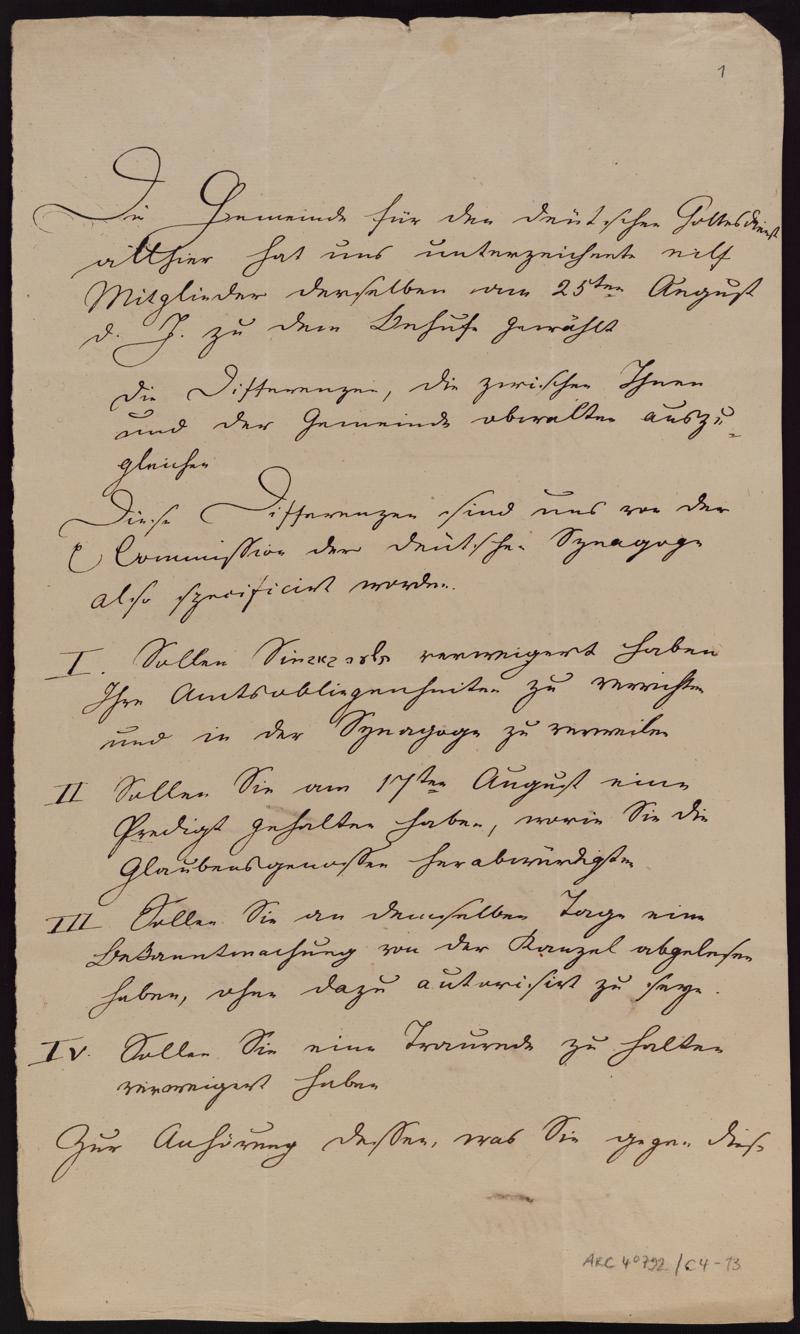 1
Die Gemeinde für den deütschen Gottesdienst
allhier hat uns unterzeichnete eilf
Mitglieder derselben am 25ten August
d. J. zu dem Behufe gewählt
die Differenzen, die zwischen Ihnen
und der Gemeinde obwalten auszu-
gleichen
Diese Differenzen sind uns von der
Commission der deütschen Synagoge
also specificirt worden.
I. Sollen Sie verweigert haben
Ihre Amtsobliegenheiten zu verrichten
und in der Synagoge zu verweilen
II Sollen Sie am 17ten August eine
Predigt gehalten haben, worin Sie die
Glaubensgenossen herabwürdigten
III Sollen Sie an demselben Tage eine
Bekanntmachung von der Kanzel abgelesen
haben, ohne dazu autorisirt zu seyn.
IV. Sollen Sie eine Traurede zu halten
verweigert haben
Zur Anhörung dessen, was Sie gegen diese
ARC 4° 792 / C4-13